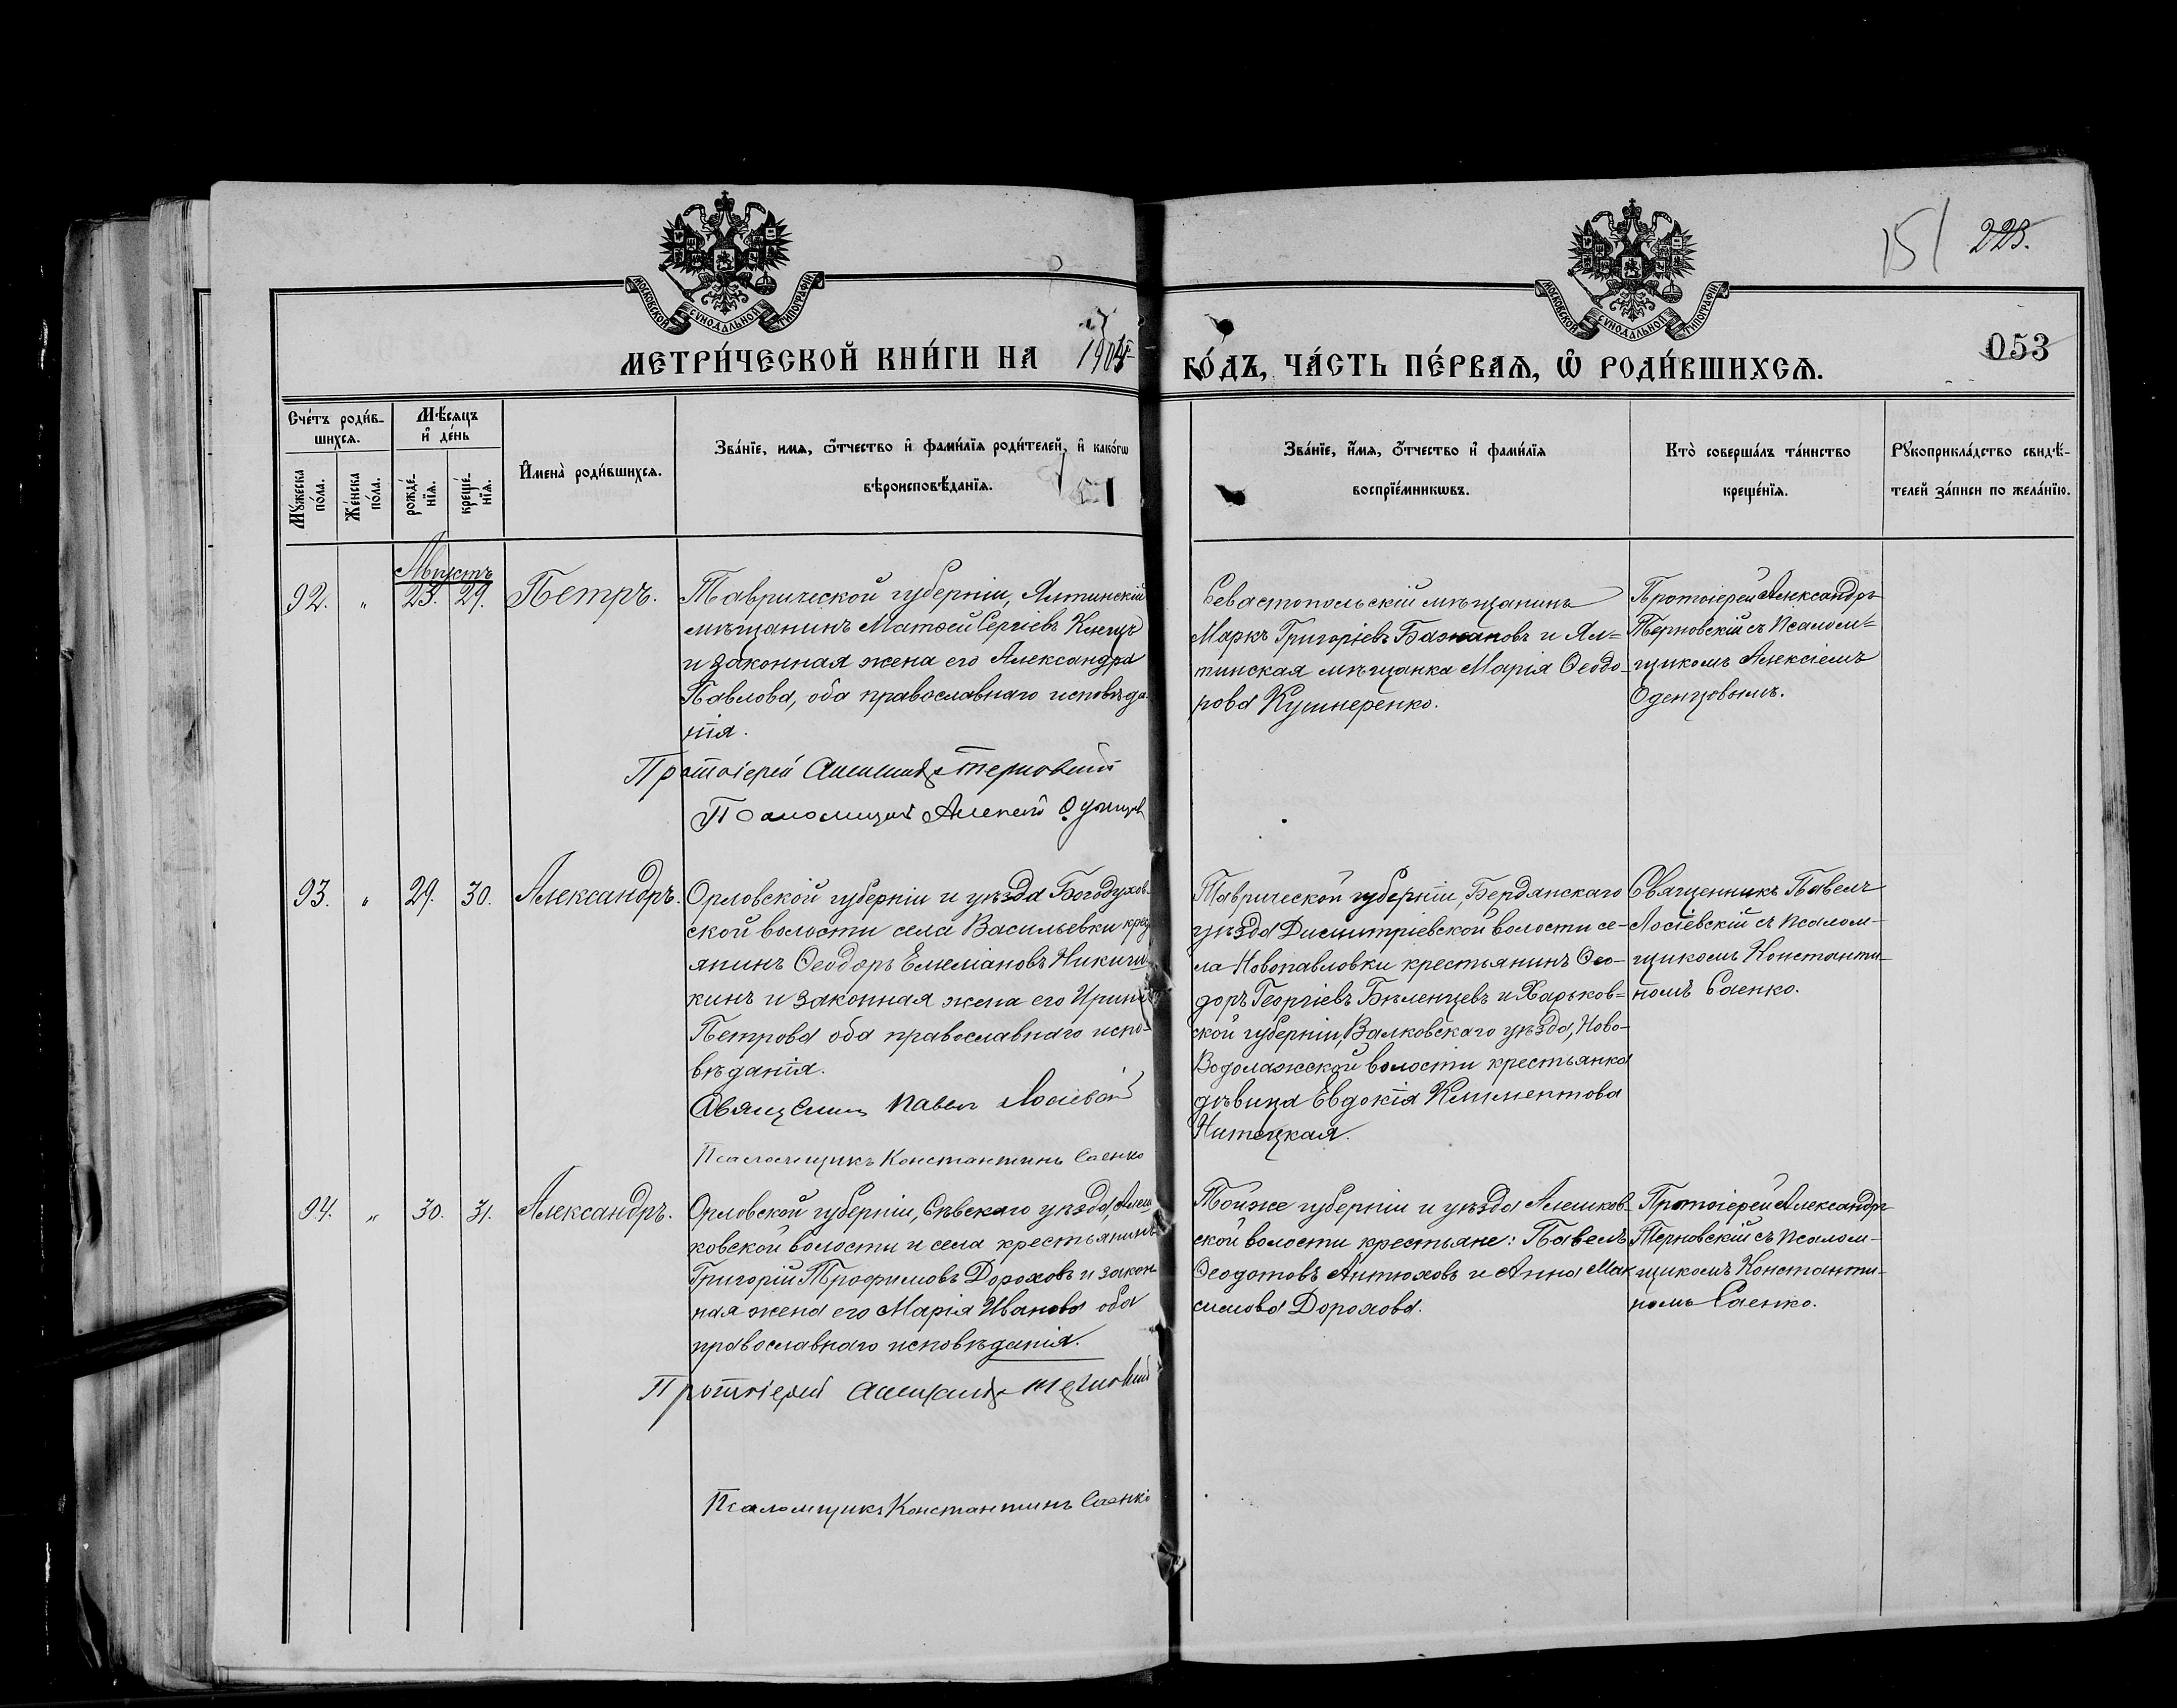 151 223.
МОСКОВСКОЙ СѴНОДАЛЬНОЙ ТИПОГРАФІИ
МОСКОВСКОЙ СѴНОДАЛЬНОЙ ТИПОГРАФІИ
МЕТРИ́ЧЕСКОЙ КНИ́ГИ НА
ГО́ДЪ, ЧА́СТЬ ПЕ́РВАѦ, Ѽ РОДИ́ВШИХСѦ.
053
Сче́тъ роди́в-
шихсѧ.
Мѣ́сѧцъ
и҆ де́нь
Мꙋ́жеска
по́ла.
Же́нска
по́ла.
рожде́-
нїѧ.
креще́-
нїѧ.
И҆мена̀ роди́вшихсѧ.
Зва́нїе, имѧ, ѻ҆́тчество и҆ фами́лїѧ роди́телей, и҆ како́гѡ
вѣроисповѣ́данїѧ.
Зва́нїе, и҆́мѧ, ѻ҆́тчество и҆ фами́лїѧ
воспрїе́мникѡвъ.
Кто̀ соверша́лъ та́инство
креще́нїѧ.
Рꙋкоприкла́дство свидѣ́-
телей за́писи по жела́нїю.
Августъ
92. " 23. 29. Петръ.
Таврической губерніи, Ялтинскій
мѣщанинъ Матѳей Сергіевъ
и законная жена его Александра
Павлова, оба православнаго исповѣда-
нія.
Протоіерей Александръ Терновскій
Псаломщикъ Алексѣй Оденцовъ
Севастопольскій мѣщанинъ
Маркъ Григоріевъ Бажановъ и Ял=
тинская мѣщанка Марія Ѳеодо-
рова Кушнеренко.
Протоіерей Александръ
Терновскій съ псалом=
щикомъ Алексіемъ
Оденцовымъ.
93. " 29. 30. Александръ.
Орловской губерніи и уѣзда Богодухов-
ской волости села Васильевки крест
янинъ Ѳеодоръ Емеліановъ Никиш-
кинъ и законная жена его Ирина
Петрова оба православнаго испо-
вѣданія.
Священникъ Павелъ Лосіевскій
Псаломщикъ Константинъ Саенко
Таврической губерніи, Бердянскаго
уѣзда Димитріевской волости се-
ла Новопавловки крестьянинъ Ѳео-
доръ Георгіевъ Бѣленцевъ и Харьков=
ской губерніи, Валковскаго уѣзда, Ново-
Водолажской волости крестьянка
дѣвица Евдокія Климентова
Нитецкая.
Священникъ Павелъ
Лосіевскій съ псалом-
щикомъ Константи-
номъ Саенко.
94. " 30. 31. Александръ.
Орловской губерніи, Сѣвскаго уѣзда, Алеш
ковской волости и села крестьянинъ
Григорій Трофимовъ Дороховъ и закон
ная жена его Марія Иванова оба
православнаго исповѣданія.
Протоіерей Александръ Терновскій
Псаломщикъ Константинъ Саенко
Той же губерніи и уѣзда Алешков-
ской волости крестьяне: Павелъ
Ѳеодотовъ Антюховъ и Анна Мак
симова Дорохова.
Протоіерей Александръ
Терновскій съ псалом-
щикомъ Константи-
номъ Саенко.